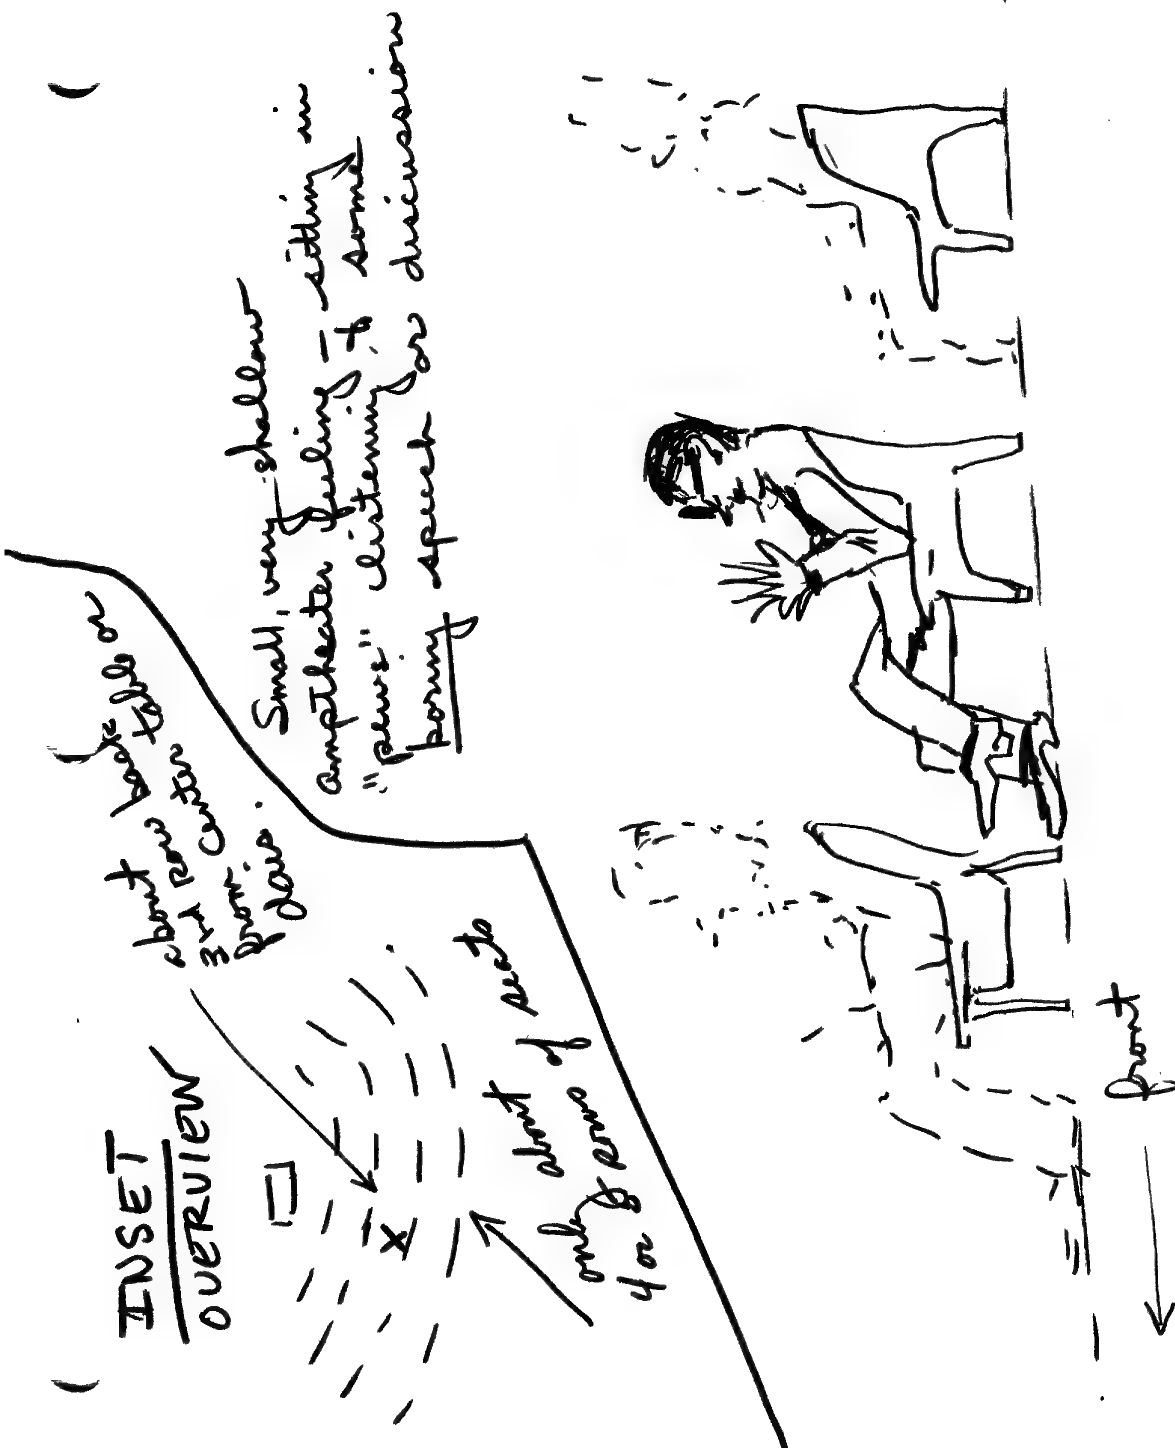 INSET
OVERVIEW
about back
3rd Row table or
from center
dais.
only about
4 or 5 rows of seats
Small, very shallow
ampitheater feeling - sitting in
"pews" listening to some
boring speech or discussion
front